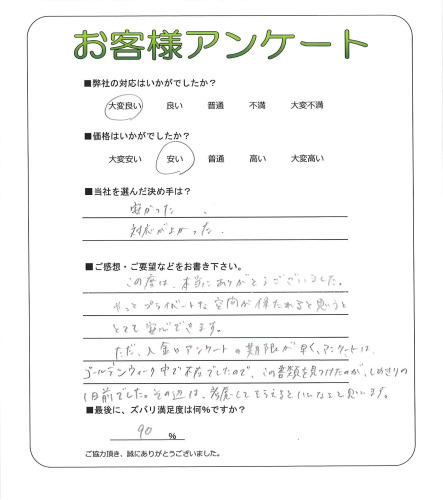 お客様アンケート
■弊社の対応はいかがでしたか?
大変良い 良い 普通 不満 大変不満
■価格はいかがでしたか?
大変安い 安い 普通 高い 大変高い
■当社を選んだ決め手は?
安かった、
対応がよかった.
■ご感想・ご要望などをお書き下さい。
この度は、本当にありがとうございました。
やっとプライベートな空間が保たれると思うと
とても安心できます。
ただ、入金やアンケートの期限が早く、アンケートは、
ゴールデンウィーク中で不在でしたので、この書類を見つけたのが、しめきりの
1日前でした。その辺は、考慮してもらえるといいなと思います。
■最後に、ズバリ満足度は何%ですか?
90 %
ご協力頂き、誠にありがとうございました。